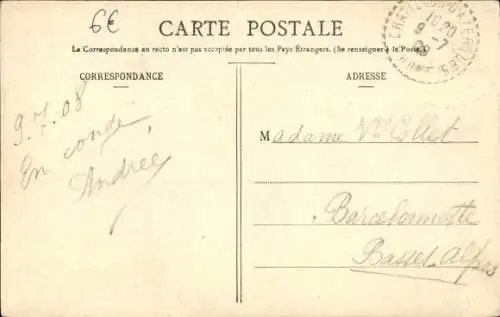 6€
CARTE POSTALE
La Correspondance au recto n'est pas acceptée par tous les Pays Étrangers. (Se renseigner à la Poste.)
CORRESPONDANCE
ADRESSE
9.7.08
En
Andrée
Madame Vve Collet
Barcelonnette
Basses Alpes
CHATILLON-D'AZERGUES
10 20
9 -7
08
RHONE